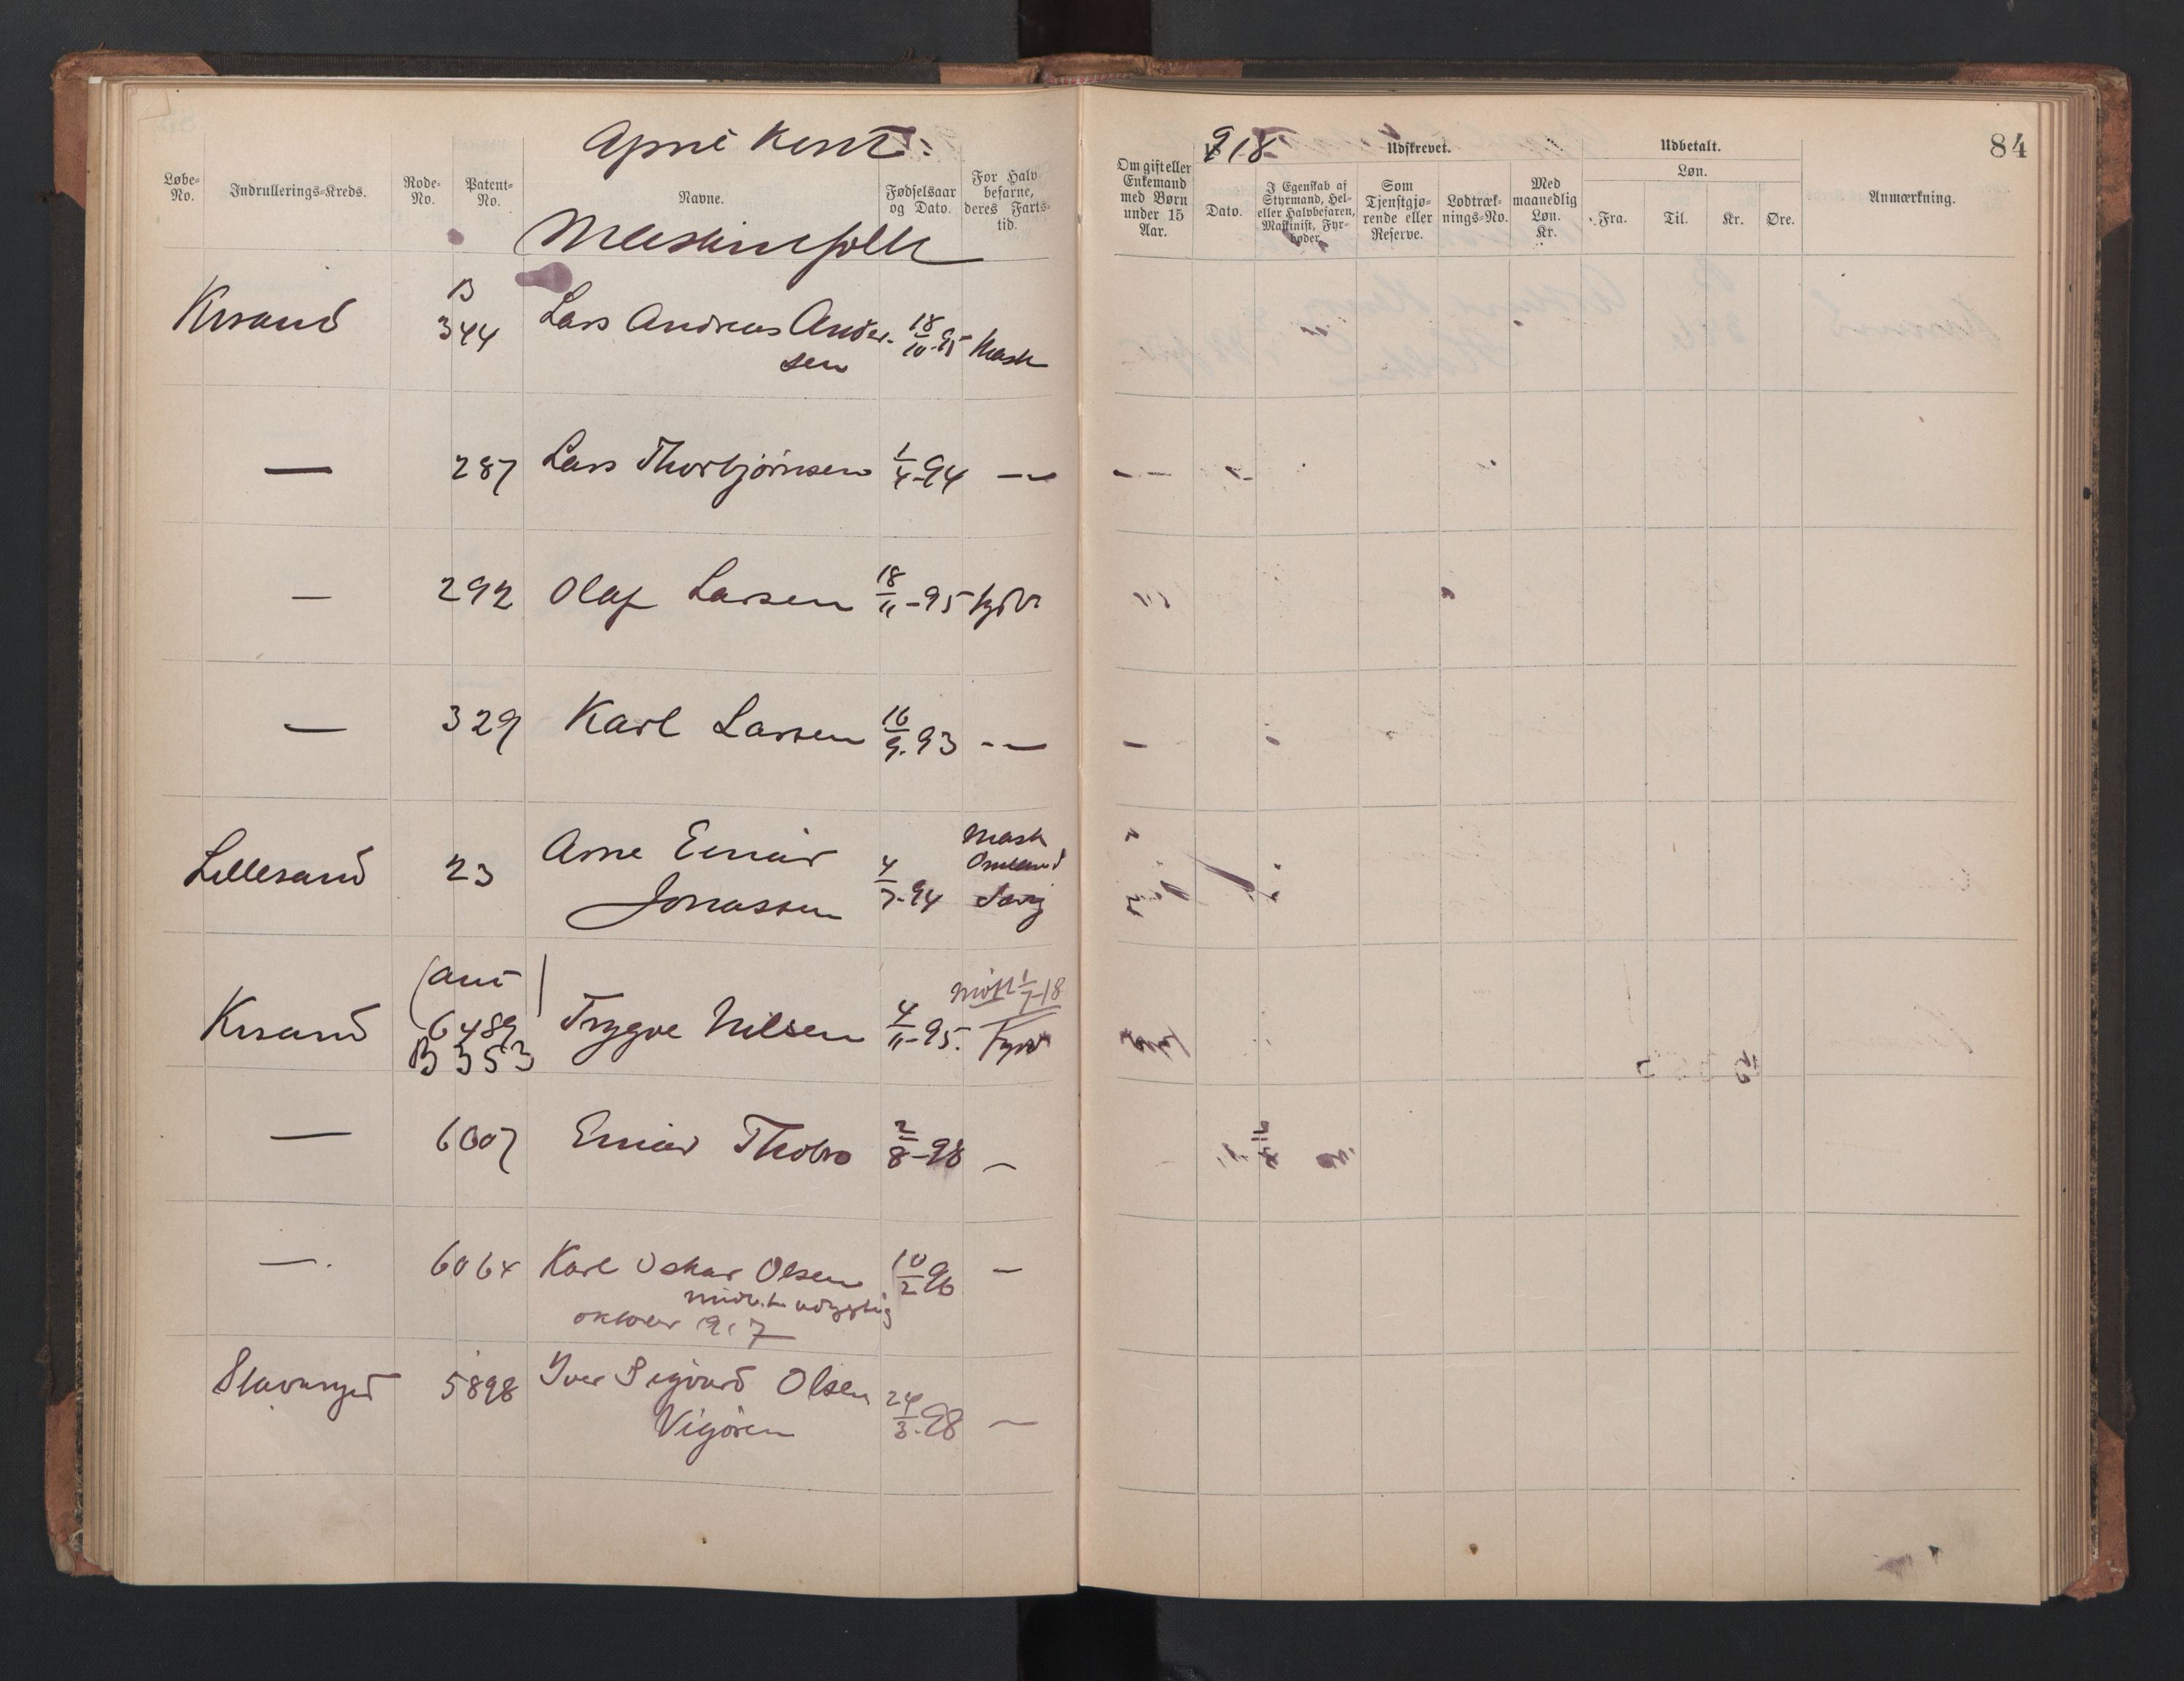 84
918
Løbe-No.
Indrullerings-Kreds.
Rode-No.
Patent-No.
Navne.
Fødselsaar og Dato.
For Halvbefarne, deres Fartstid.
Om gift eller Enkemand med Børn under 15 Aar.
Udskrevet.
Dato.
I Egenskab af Styrmand, Hel- eller Halvbefaren, Maskinist, Fyrbøder.
Som Tjenstgjørende eller Reserve.
Lodtræknings-No.
Med maanedlig Løn. Kr.
Udbetalt.
Løn.
Fra.
Til.
Kr.
Øre.
Anmærkning.
Maskinfolk
Krsand B 344 Lars Andreas Andersen 18/10-95 Mask
— 287 Lars Thorbjørnsen 1/4-94 —
— 292 Olaf Larsen 18/11-95 fyrb
— 329 Karl Larsen 16/9-93 —
Lillesand 23 Arne Einar Jonassen 4/7-94 Mask
Krsand 6489 B 353 Trygve Nilsen 4/11-95 Fyrb
1/7-18
— 6007 Einar 2/8-98 —
— 6064 Karl Oskar Olsen 10/2 96 —
1917
Stavanger 5898 Iver Sigvard Olsen Vigøren 24/3-98 —